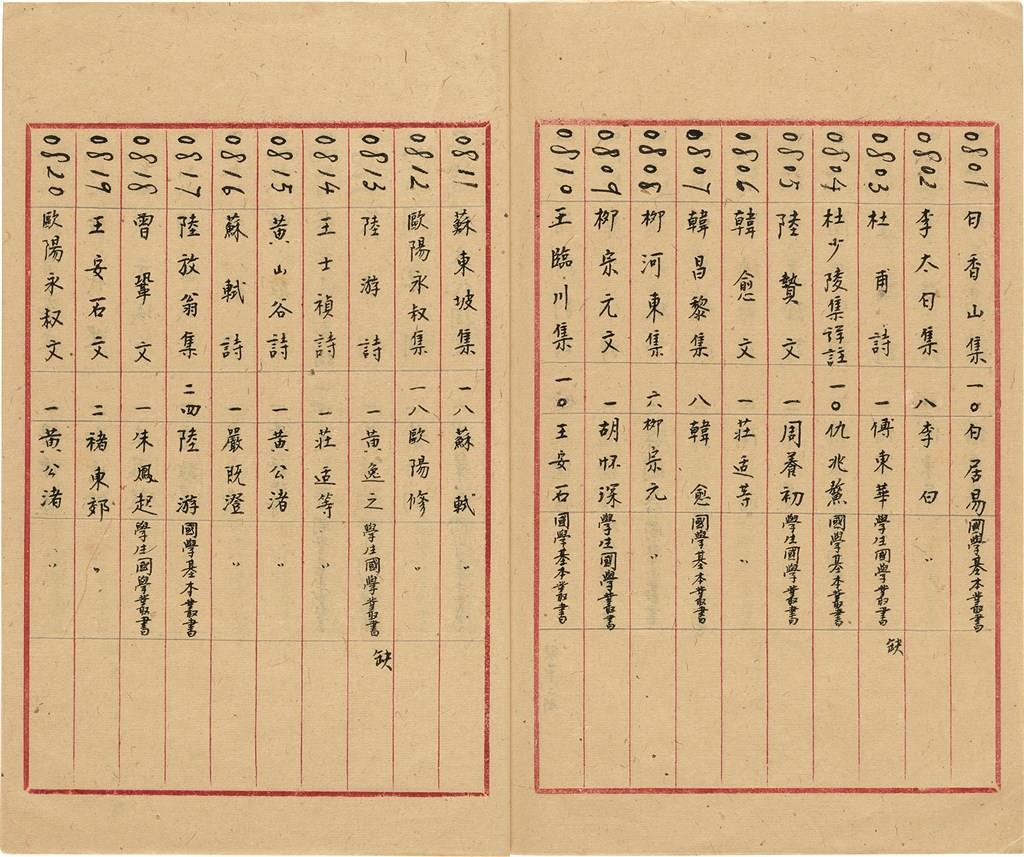 0801 白香山集 一〇 白居易 國學基本叢書
0802 李太白集 八 李白 〃
0803 杜甫詩 一 傅東華 學生國學叢書 缺
0804 杜少陵集詳註 一〇 仇兆鰲 國學基本叢書
0805 陸贄文 一 周養初 學生國學叢書
0806 韓愈文 一 莊適等 〃
0807 韓昌黎集 八 韓愈 國學基本叢書
0808 柳河東集 六 柳宗元 〃
0809 柳宗元文 一 胡怀琛 學生國學叢書
0810 王臨川集 一〇 王安石 國學基本叢書
0811 蘇東坡集 一八 蘇軾 〃
0812 歐陽永叔集 一八 歐陽修 〃
0813 陸游詩 一 黃逸之 學生國學叢書 缺
0814 王士禎詩 一 莊适等 〃
0815 黃山谷詩 一 黃公渚 〃
0816 蘇軾詩 一 嚴既澄 〃
0817 陸放翁集 二四 陸游 國學基本叢書
0818 曾鞏文 一 朱鳳起 學生國學叢書
0819 王安石文 二 褚東郊 〃
0820 歐陽永叔文 一 黃公渚 〃